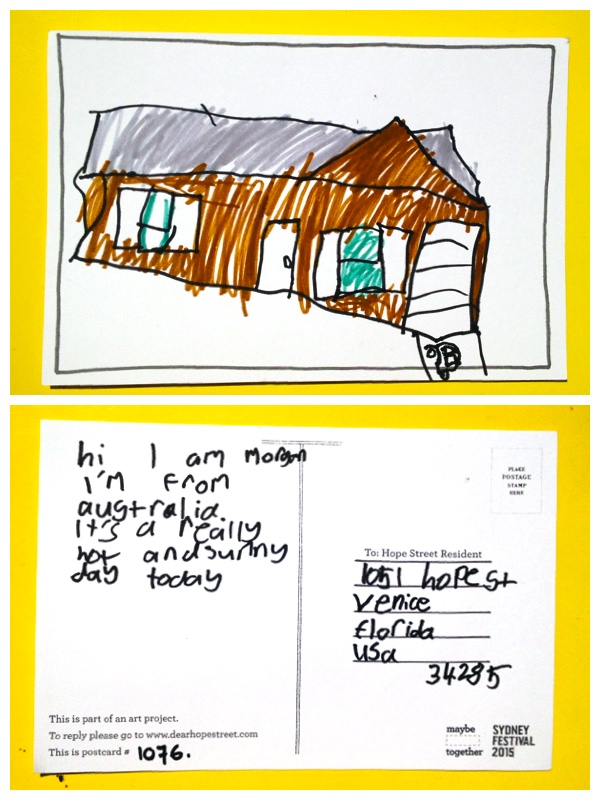 hi I am Morgan
I'm from
australia.
It's a really
hot and sunny
day today
PLACE
POSTAGE
STAMP
HERE
To: Hope Street Resident
1051 hope st
venice
florida
usa
34285
This is part of an art project.
To reply please go to www.dearhopestreet.com
This is postcard # 1076.
maybe
together
SYDNEY
FESTIVAL
2015